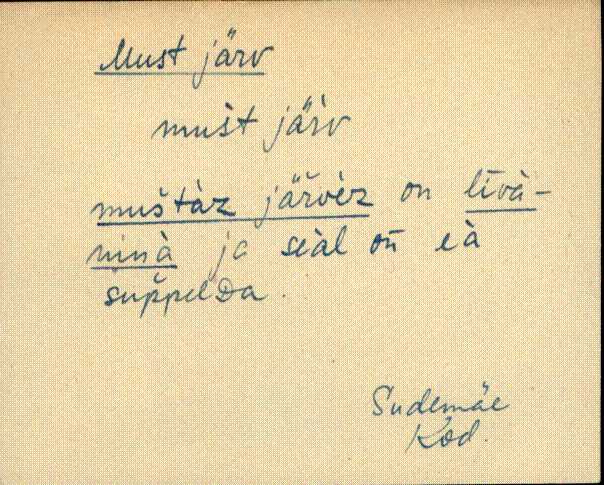 Must järv
mušt järv
muštàz järvèz on līvà-
ninà ja seàl on eà
šuppelDa.
Sudemäe
Kod.